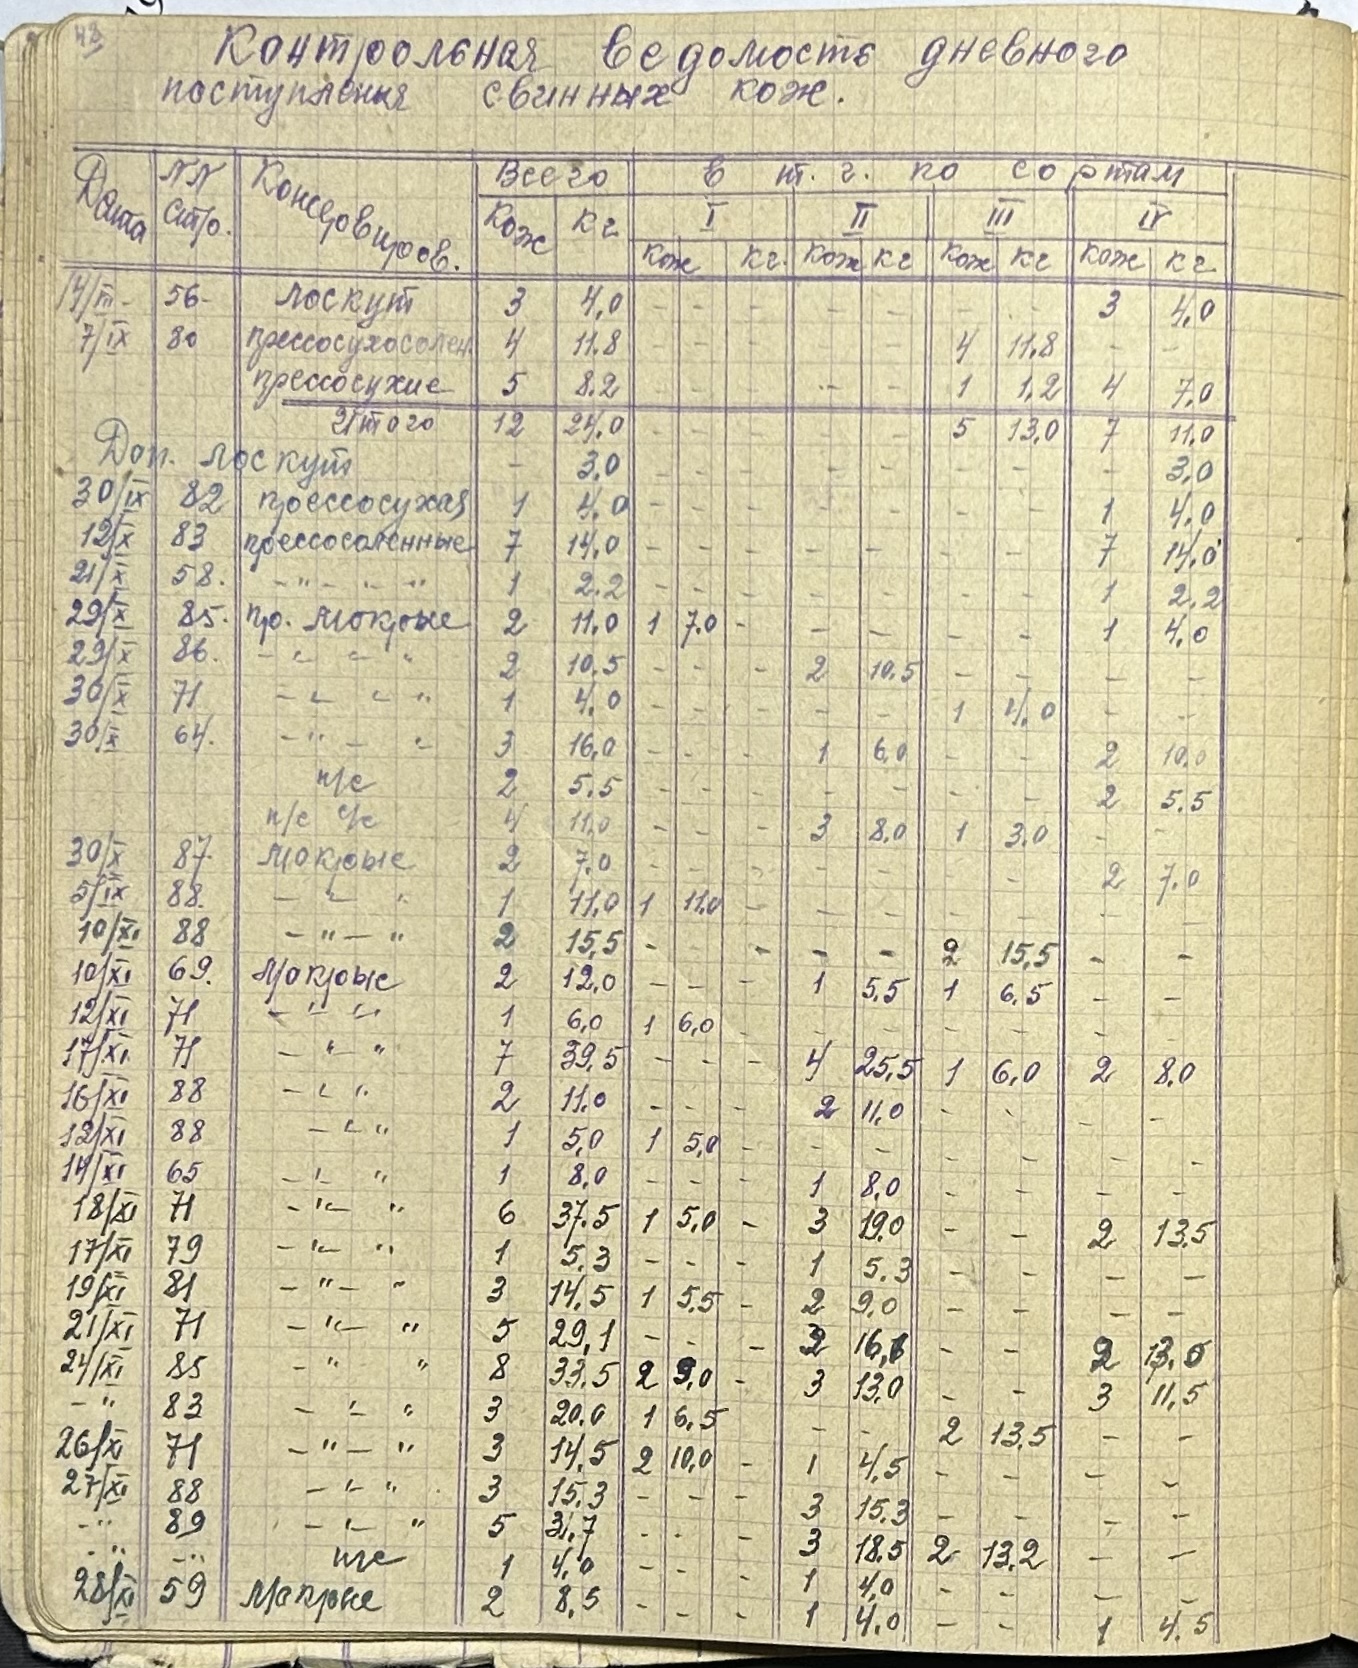 48
Контрольная ведомость дневного
поступления свинных кож.
Дата NN стр. Консервиров. Всего в т. г. по сортам
I II III IV
Кож кг кож кг. кож кг кож кг кож кг
14/III- 56- лоскут 3 4,0 - - - - - - - 3 4,0
7/IX 80 прессосухосолен. 4 11.8 - - - - - 4 11,8 - -
прессосухие 5 8.2 - - - - - 1 1,2 4 7,0
Итого 12 24,0 - - - - - 5 13,0 7 11,0
Доп. лоскут - 3,0 - - - - - - - - 3,0
30/IX 82 прессосухая 1 4,0 - - - - - - - 1 4,0
12/X 83 прессосоленные 7 14,0 - - - - - - - 7 14,0
21/X 58. -"- "- " 1 2.2 - - - - - - - 1 2,2
29/X 85. пр. мокрые 2 11,0 1 7.0 - - - - - 1 4,0
29/X 86. -" " " 2 10.5 - - - 2 10,5 - - - -
30/X 71 -" " " 1 4,0 - - - - - 1 4,0 - -
30/X 64. -" - " 3 16,0 - - - 1 6,0 - - 2 10,0
п/с 2 5.5 - - - - - - - 2 5.5
п/с с/с 4 11,0 - - - 3 8,0 1 3,0 - -
30/X 87. Мокрые 2 7,0 - - - - - - - 2 7,0
5/IX 88. - " - " 1 11,0 1 11,0 - - - - - - -
10/XI 88 -"- " 2 15,5 - - - - - 2 15,5 - -
10/XI 69. Мокрые 2 12,0 - - - 1 5,5 1 6,5 - -
12/XI 71 -" " " 1 6,0 1 6,0 - - - - - - -
17/XI 71 -"- " 7 39,5 - - - 4 25,5 1 6,0 2 8,0
16/XI 88 -" " 2 11,0 - - - 2 11,0 - - -
12/XI 88 -"- " 1 5,0 1 5,0 - - - - - - -
14/XI 65 -"- " 1 8,0 - - - 1 8,0 - - - -
18/XI 71 -"- " 6 37.5 1 5,0 - 3 19,0 - - 2 13,5
17/XI 79 -"- " 1 5,3 - - - 1 5.3 - - - -
19/XI 81 -"- " 3 14,5 1 5,5 - 2 9,0 - - - -
21/XI 71 -"- " 5 29,1 - - - 2 16,1 - - 2 13,0
24/XI 85 -" " 8 33.5 2 9,0 - 3 13,0 - - 3 11,5
-" 83 -"- " 3 20,0 1 6,5 - - 2 13,5 - -
26/XI 71 -"- " 3 14,5 2 10,0 - 1 4,5 - - - -
27/XI 88 -"- " 3 15.3 - - - 3 15.3 - - - -
-" 89 -"- " 5 31,7 - - - 3 18,5 2 13,2 - -
-" -" п/с 1 4,0 - - - 1 4,0 - - - -
28/XI 59 Мокрые 2 8,5 - - - 1 4,0 - - 1 4.5